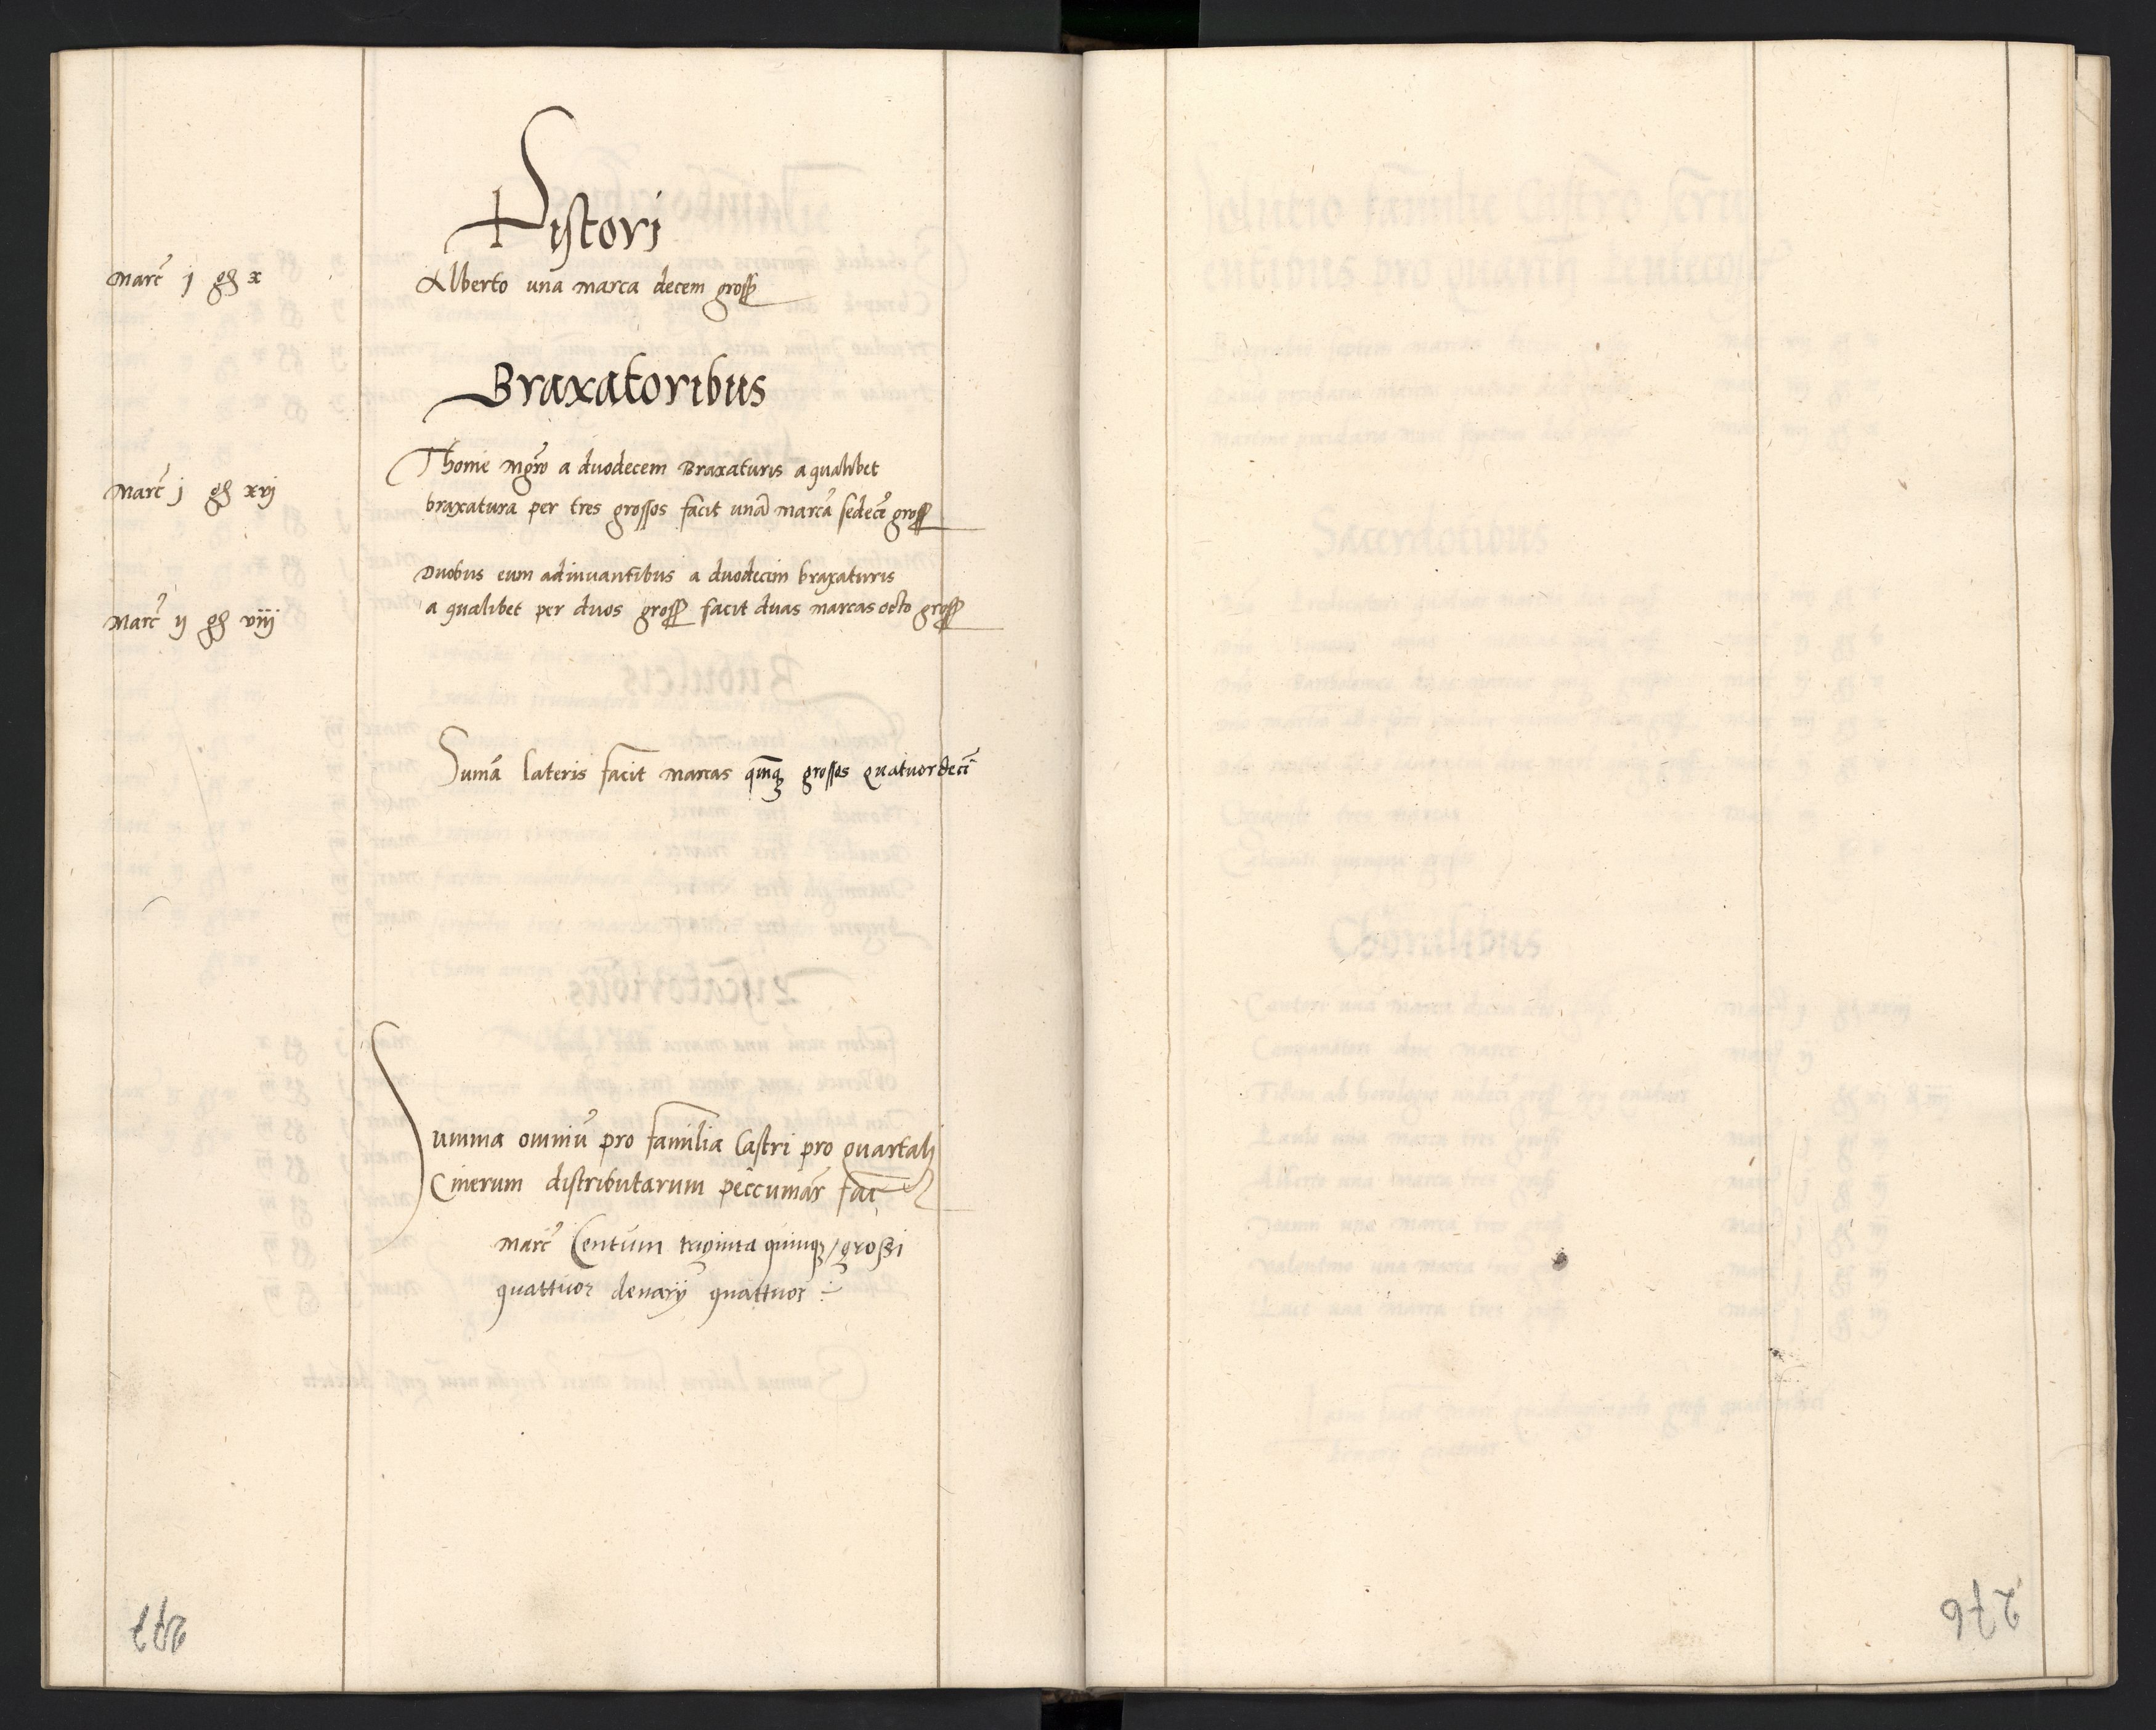 Pistori
Marc̃ j gř x
Alberto una marca decem gross
Braxatoribus
Thome Mgřo a duodecem Braxaturis a qualibet
Marc̃ j gř xvj
braxatura per tres grossos facit unã marcã sedecẽ gross
Duobus eum adiuvantibus a duodecim braxaturis
a qualibet per duos gross facit duas marcas octo gross
Marc̃ ij gř viij
Sumã lateris facit marcas quinq3 grossos quatuordecĩ
Summa omniũ pro familia Castri pro quartali
Cinerum distributarum peccuniar̃ facit
Marc̃ Centum triginta quinq3 / grossi
quattuor denarij quattuor
277
276